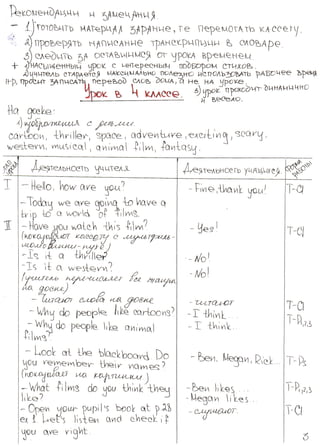 Рекомендации и замечания
– 1) готовить материал заранее, т.е перемотать кассету.
2) проверять написание транскрипции в словаре.
3) следить за оставшимся от урока временем
+ насыщенный урок с интересным подбором стихов.
учитель старается максимально полезно использовать рабочее время
н-р, просит записать перевод слов дома, а не на уроке,
Урок в 4 классе.
3) урок проходит динамично
и весело.
На доске:
1) изображения с
cartoon, thriller, space, adventure, exciting, scary.
western, musical, animal film, fantasy.
Деятельность учителя
Деятельность учащихся
I
– Hello, how are you?
– Fine, thank you!
T–Cl
– Today we are going to have a
trip to a world of films.
II
– Have you watch this film?
– Yes!
T–Cl
(показывают кассету с мультфиль-
мом Винни-пух)
– Is it a thriller?
– No!
– Is it a western?
– No!
(учитель перечисляет все жанры
на доске)
– Читают слова на доске
– читают
T–Cl
– Why do people like cartoons?
– I think...
T–P1,2,3
– Why do people like animal
films?
– I think...
– Look at the blackboard. Do
you remember their names?
(показывает на картинки)
– Ben, Megan, Rick...
T–Ps
– What films do you think they
like?
– Ben likes...
– Megan likes...
T–P1,2,3
– Open your pupil's book at p 28
ex 1. Let's listen and check if
you are right.
– слушают.
T–Cl
3